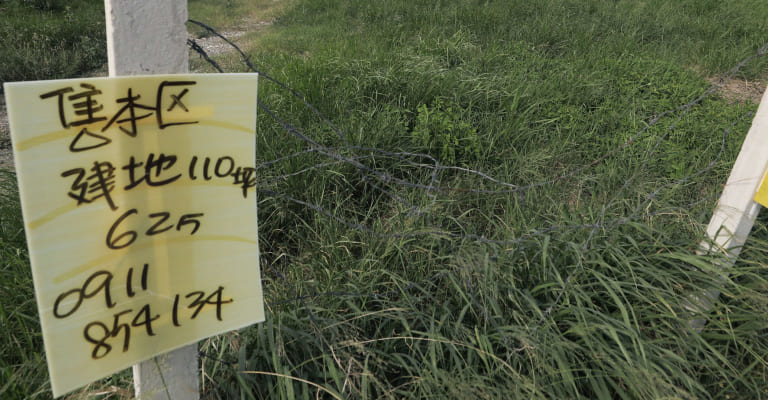 售本区
建地110坪
625
0911
854134